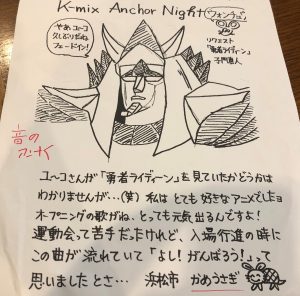 K-mix Anchor Night
やあユーコ
久しぶりだね
フェードイン!
リクエスト
「勇者ライディーン」
子門真人
音の
ユーコさんが「勇者ライディーン」を見ていたかどうかは
わかりませんが…(笑)私はとても好きなアニメでしたョ
オープニングの歌がね、とっても元気出るんですよ!
運動会って苦手だったけれど、入場行進の時に
この曲が流れていて「よし!がんばろう!」って
思いましたとさ… 浜松市 かめうさぎ